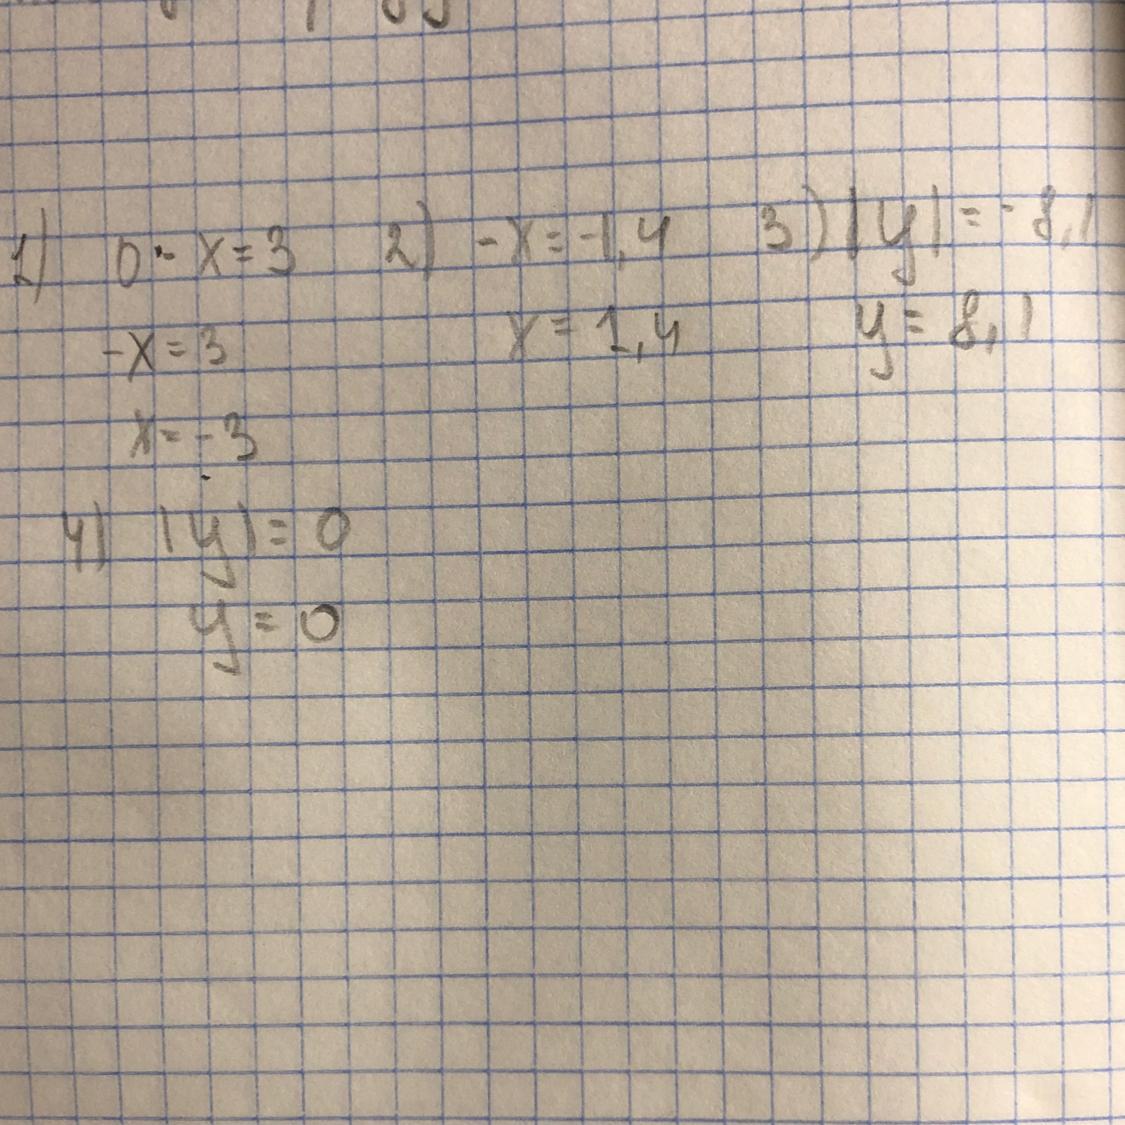 1) 0 - x = 3 2) -x = -1,4 3) |y| = -8,1
-x = 3 x = 1,4 y = 8,1
x = -3
4) |y| = 0
y = 0